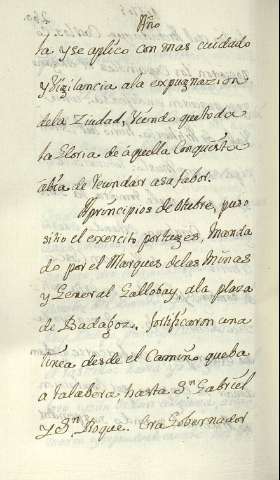 Año
la y se aplico con mas cuidado
y vigilancia ala expugnazion
dela Ziudad, viendo que toda
la Gloria de aquella Conquista
abia de redundar a su fabor.
A principios de octubre, puso
sitio el exercito portuges, manda
do por el Marques de las Minas
y General Gallobay, ala plaza
de Badajoz, fortificaron una
linea desde el Camino que ba
a talabera, hasta Sn. Gabriel
y Sn. Roque. Era Gobernador